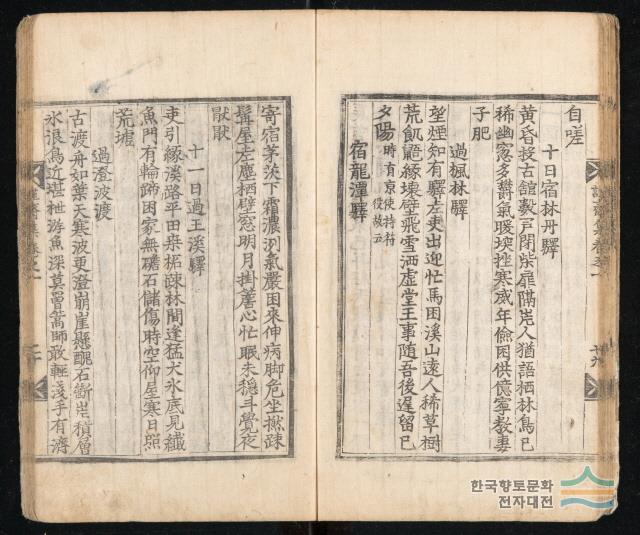 自嗟
十日宿林丹驛
黃昏投古舘數戶閉柴扉隔岸人猶語栖林鳥已
稀幽窓多欝氣暖埃挫寒威年儉困供億寧敎妻
子肥
過楓林驛
望煙知有驛老吏出迎忙馬困溪山遠人稀草樹
荒飢鼯緣壞壁飛雪洒虛堂王事隨吾後遲留已
夕陽時有京使持符
宿龍潭驛
寄宿茅茨下霜濃冽氣嚴困來伸病脚危坐撚疎
髯屋老塵栖壁窓明月掛簷心忙眠未穩斗覺夜
厭厭
十一日過王溪驛
吏引緣溪路平田桑柘疎林間逢猛犬氷底見纖
魚門有輪蹄困家無石儲傷時空仰屋寒日照
荒墟
過澄波渡
古渡舟如葉天寒波更澄崩崖懸醜石斷岸積層
氷浪鳥近堪紲游魚深莫罾篙師敢輕淺手有濟
한국향토문화
전자대전